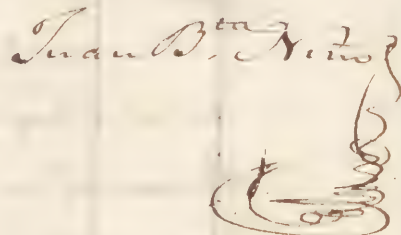 Juan B.ta Nito